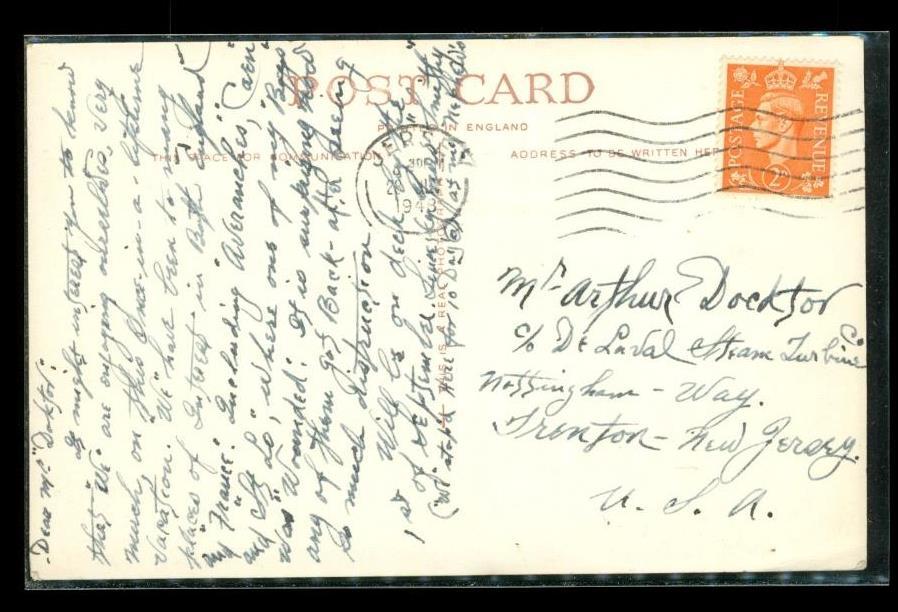 POST CARD
PRINTED IN ENGLAND
THIS SPACE FOR COMMUNICATION
ADDRESS TO BE WRITTEN HERE
THIS IS A REAL PHOTOGRAPH
POSTAGE
REVENUE
2D
194
Dear Mr "Doktor"
It might interest you to know
that "We" are enjoying ourselves very
much on this Once-in-a-lifetime
Vacation. "We" have been to many
places of Interest in Both "England"
and "France". Including "Avaranches," "Caen"
and "St Lo," where one of my "Boys"
was "Wounded". It is surprising how
any of them got Back - after seeing
so much distruction.
Will be on deck by the
1st of September
(We stayed Here for 10 Days
Mr Arthur Docktor
c/o De Laval Steam Turbine
Nottingham - Way.
Trenton - New Jersey.
U. S. A.